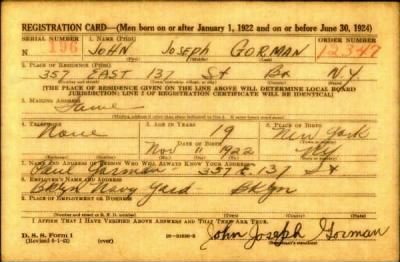 REGISTRATION CARD—(Men born on or after January 1, 1922 and on or before June 30, 1924)
SERIAL NUMBER 1. NAME (Print) ORDER NUMBER
N 196 JOHN JOSEPH GORMAN 12347
(First) (Middle) (Last)
2. PLACE OF RESIDENCE (Print)
357 EAST 137 St Bx N.Y.
(Number and street) (Town, township, village, or city) (County) (State)
[THE PLACE OF RESIDENCE GIVEN ON THE LINE ABOVE WILL DETERMINE LOCAL BOARD
JURISDICTION; LINE 2 OF REGISTRATION CERTIFICATE WILL BE IDENTICAL]
3. MAILING ADDRESS
Same
4. TELEPHONE 5. AGE IN YEARS 6. PLACE OF BIRTH
None 19 New York
DATE OF BIRTH
Nov 11 1922 NY
7. NAME AND ADDRESS OF PERSON WHO WILL ALWAYS KNOW YOUR ADDRESS
Gorman 357 E. 137 St
8. EMPLOYER'S NAME AND ADDRESS
Bklyn Navy Yard - Bklyn
9. PLACE OF EMPLOYMENT OR BUSINESS
I AFFIRM THAT I HAVE VERIFIED ABOVE ANSWERS AND THAT THEY ARE TRUE.
D. S. S. Form 1
(over)
John Joseph Gorman